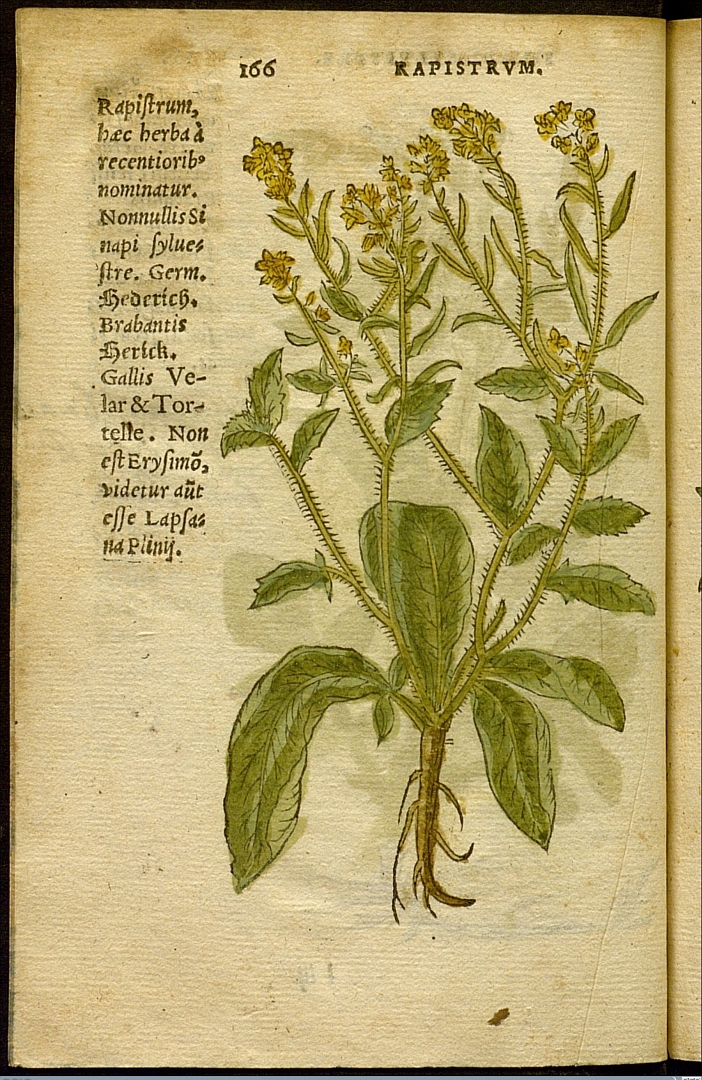 166 RAPISTRVM.
Rapiſtrum,
hæc herba à
recentioribꝰ
nominatur.
Nonnullis Si
napi ſylue⸗
ſtre. Germ.
Hederich.
Brabantis
Herick.
Gallis Ve-
lar & Tor-
telle. Non
eſt Eryſimõ,
videtur aũt
eſſe Lapſa⸗
na Plinij.